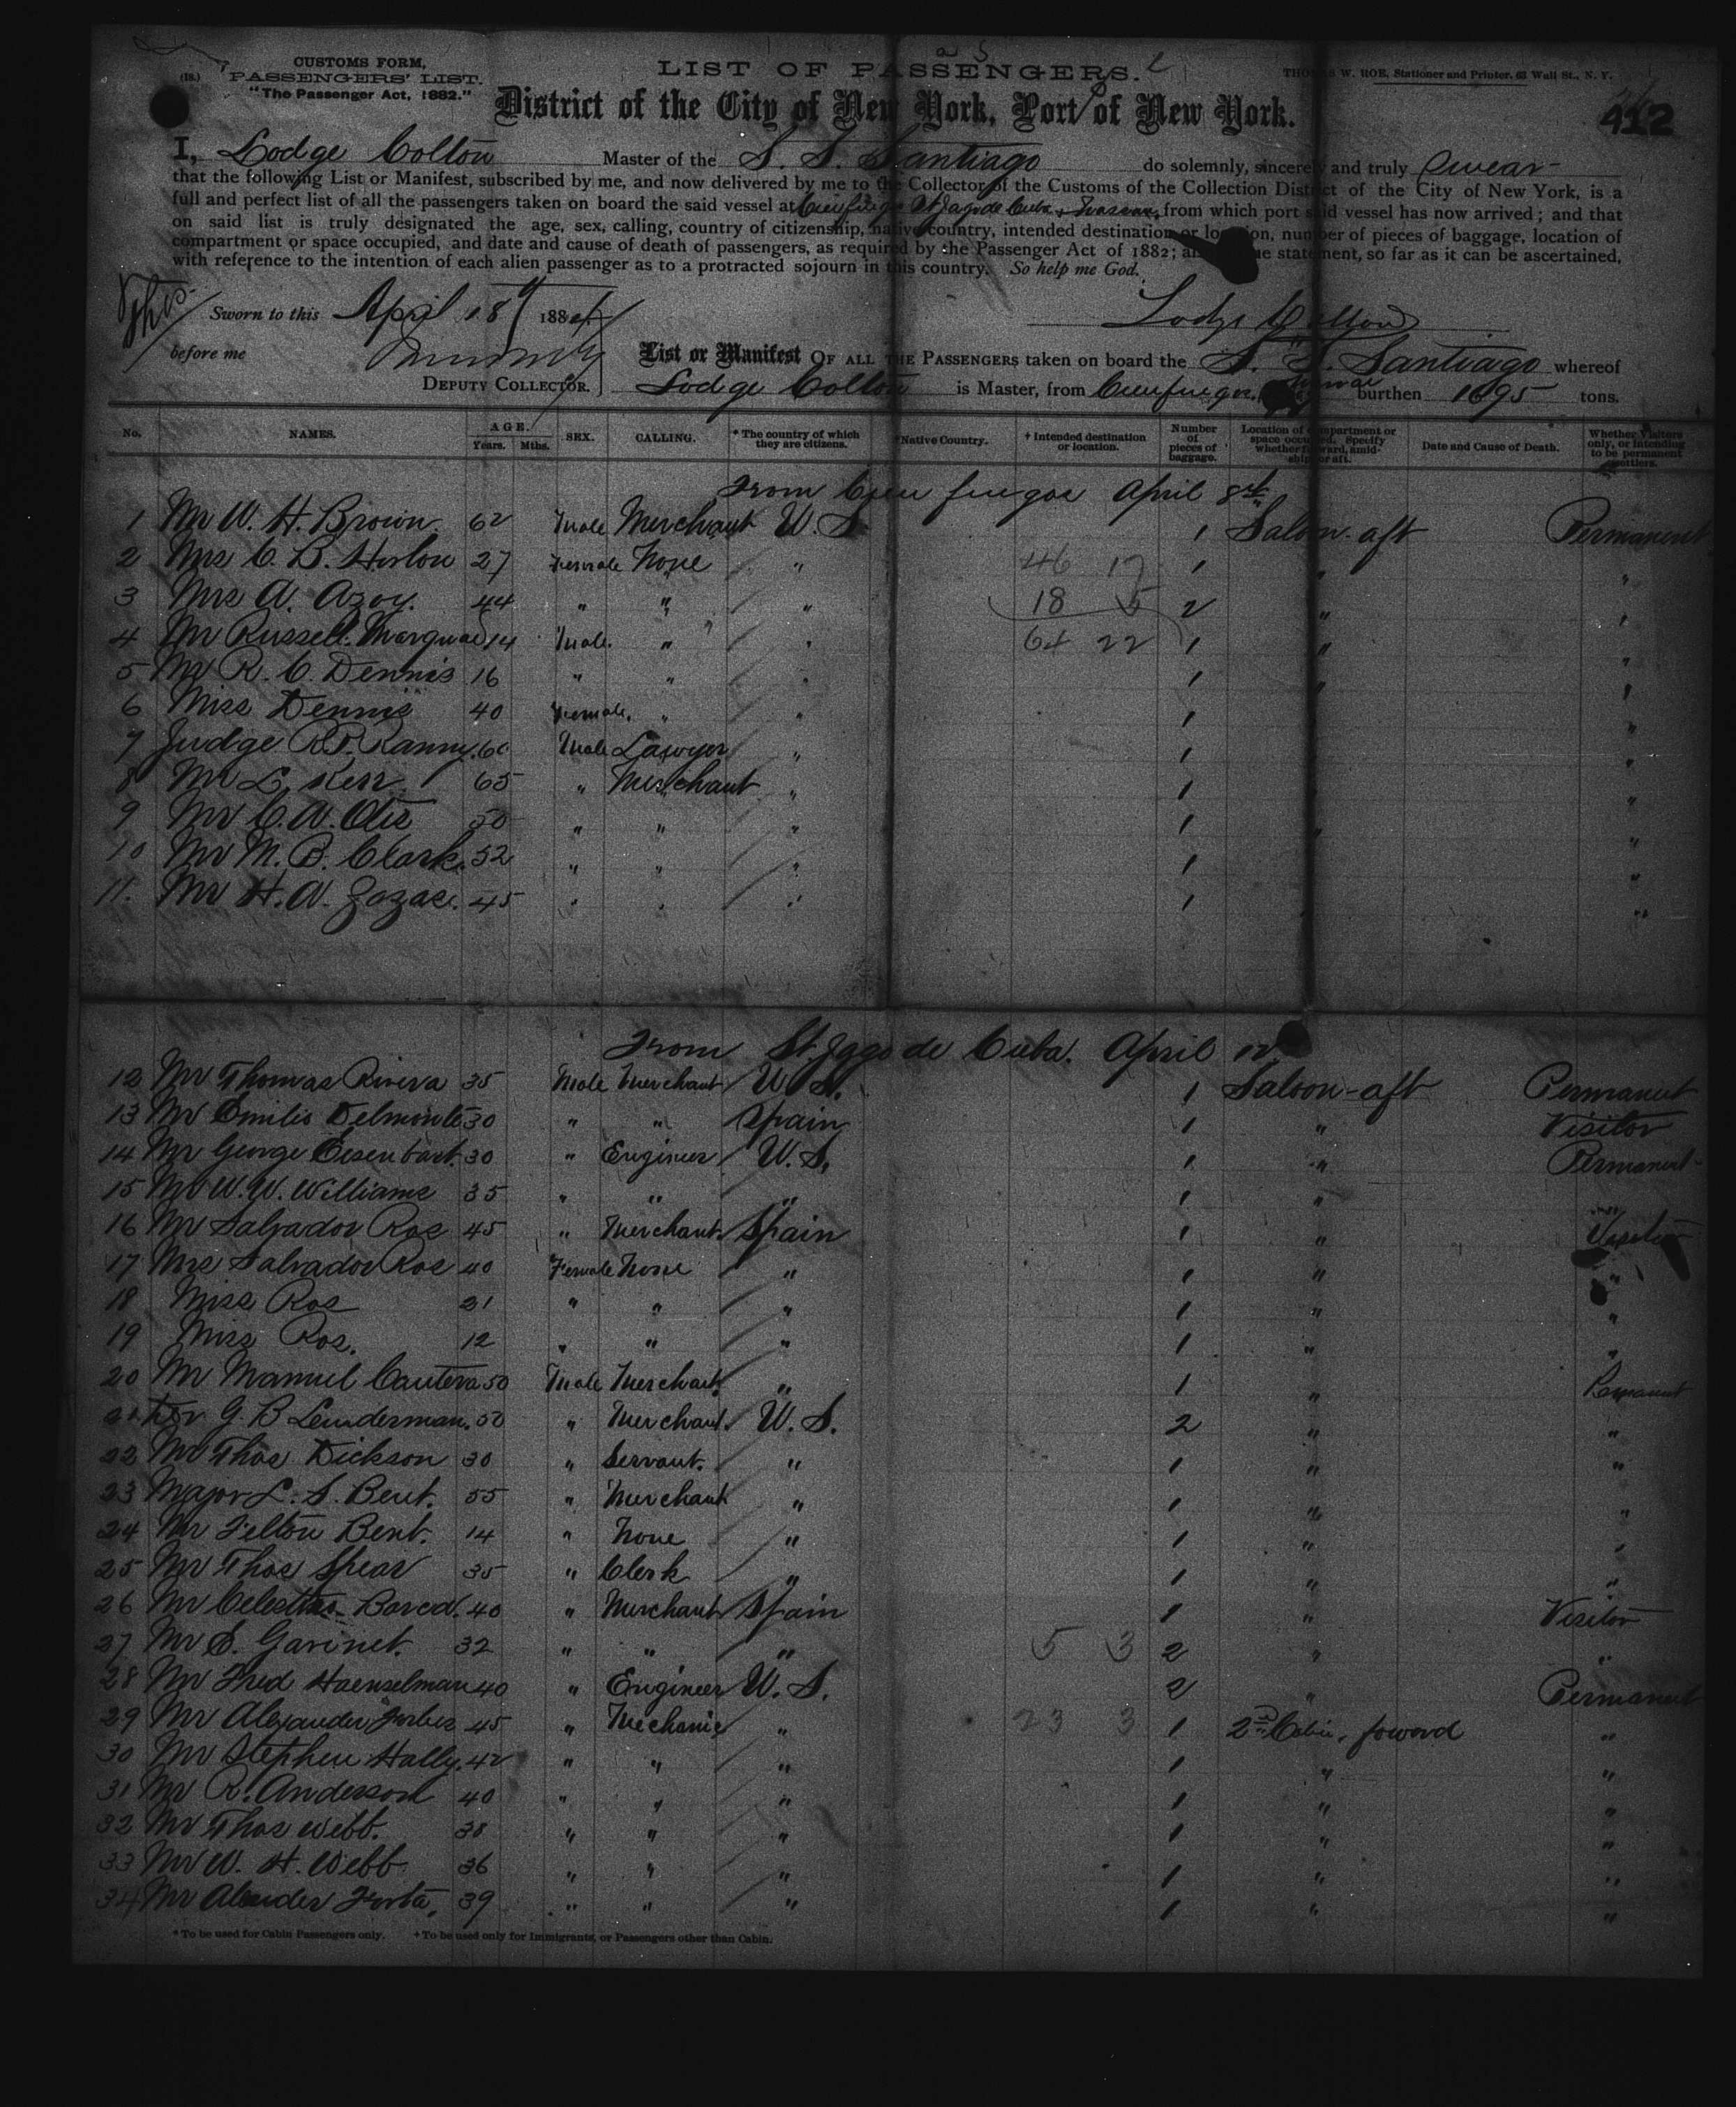 (18.) CUSTOMS FORM,
PASSENGERS' LIST.
"The Passenger Act, 1882."
LIST OF PASSENGERS.
THOMAS W. ROE, Stationer and Printer, 63 Wall St., N. Y.
412
District of the City of New York, Port of New York.
I, Lodge Colton Master of the S. S. Santiago do solemnly, sincerely and truly swear
that the following List or Manifest, subscribed by me, and now delivered by me to the Collector of the Customs of the Collection District of the City of New York, is a
full and perfect list of all the passengers taken on board the said vessel at Cienfuegos St Jago de Cuba & Nassau, from which port said vessel has now arrived; and that
on said list is truly designated the age, sex, calling, country of citizenship, native country, intended destination or location, number of pieces of baggage, location of
compartment or space occupied, and date and cause of death of passengers, as required by the Passenger Act of 1882; and true statement, so far as it can be ascertained,
with reference to the intention of each alien passenger as to a protracted sojourn in this country. So help me God.
Sworn to this April 18 1884
Lodge Colton
before me
DEPUTY COLLECTOR.
List or Manifest OF ALL THE PASSENGERS taken on board the S. S. Santiago whereof
Lodge Colton is Master, from Cienfuegos, burthen 1695 tons.
No. NAMES. AGE. Years. Mths. SEX. CALLING. * The country of which they are citizens. Native Country. † Intended destination or location. Number of pieces of baggage. Location of compartment or space occupied. Specify whether forward, amidship or aft. Date and Cause of Death. Whether Visitors only, or intending to be permanent settlers.
From Cienfuegos April 8th
1 Mr W. H. Brown. 62 Male Merchant U. S. 1 Saloon aft Permanent
2 Mrs C. B. Horlon 27 Female None " 46 17 1 " "
3 Mrs A. Azoy. 44 " " " 18 5 2 " "
4 Mr Russell Marquae 14 Male. " " 64 22 1 " "
5 Mr R. C. Dennis 16 " " " 1 " "
6 Miss Dennis 40 Female. " " 1 "
7 Judge R. P. Ranny. 60 Male Lawyer " 1 "
8 Mr L. Kerr 65 " Merchant " 1 "
9 Mr C. A. Otis 50 " " " 1 " "
10 Mr M. B. Clark. 52 " " " 1 "
11. Mr H. A. Zozac. 45 " " " 1 "
From St. Jago de Cuba. April 12
12 Mr Thomas Rivera 35 Male Merchant U. S. 1 Saloon-aft Permanent
13 Mr Emilio Delmonte 30 " " Spain 1 " Visitor
14 Mr George Eisenbart. 30 " Engineer U. S. 1 " Permanent
15 Mr W. W. Williams 35 " " " 1 " "
16 Mr Salvador Ros 45 " Merchant Spain 1 " Visitor
17 Mrs Salvador Ros 40 Female None " 1 " "
18 Miss Ros 21 " " " 1 " "
19 Miss Ros. 12 " " " 1 " "
20 Mr Manuel Cautera 50 Male Merchant " 1 " Permanent
21 G. B Lenderman. 50 " Merchant. U. S. 2 " "
22 Mr Thos Dickson 30 " Servant. " 1 " "
23 Major L. S. Bent. 55 " Merchant " 1 " "
24 Mr Felton Bent. 14 " None " 1 " "
25 Mr Thos Spear 35 " Clerk " 1 " "
26 Mr Bared. 40 " Merchant Spain 1 " Visitor
27 Mr E. Garinet. 32 " " " 5 3 2 " "
28 Mr Fred Haenselman 40 " Engineer U. S. 2 " Permanent
29 Mr Alexander Forbes 45 " Mechanic " 23 3 1 2nd Cabin, foword "
30 Mr Stephen Hally. 42 " " " 1 " "
31 Mr R. Anderson 40 " " " 1 " "
32 Mr Thos Webb. 38 " " " 1 " "
33 Mr W. H. Webb 36 " " " 1 " "
34 Mr Alexander 39 " " " 1 " "
* To be used for Cabin Passengers only. † To be used only for Immigrants, or Passengers other than Cabin.